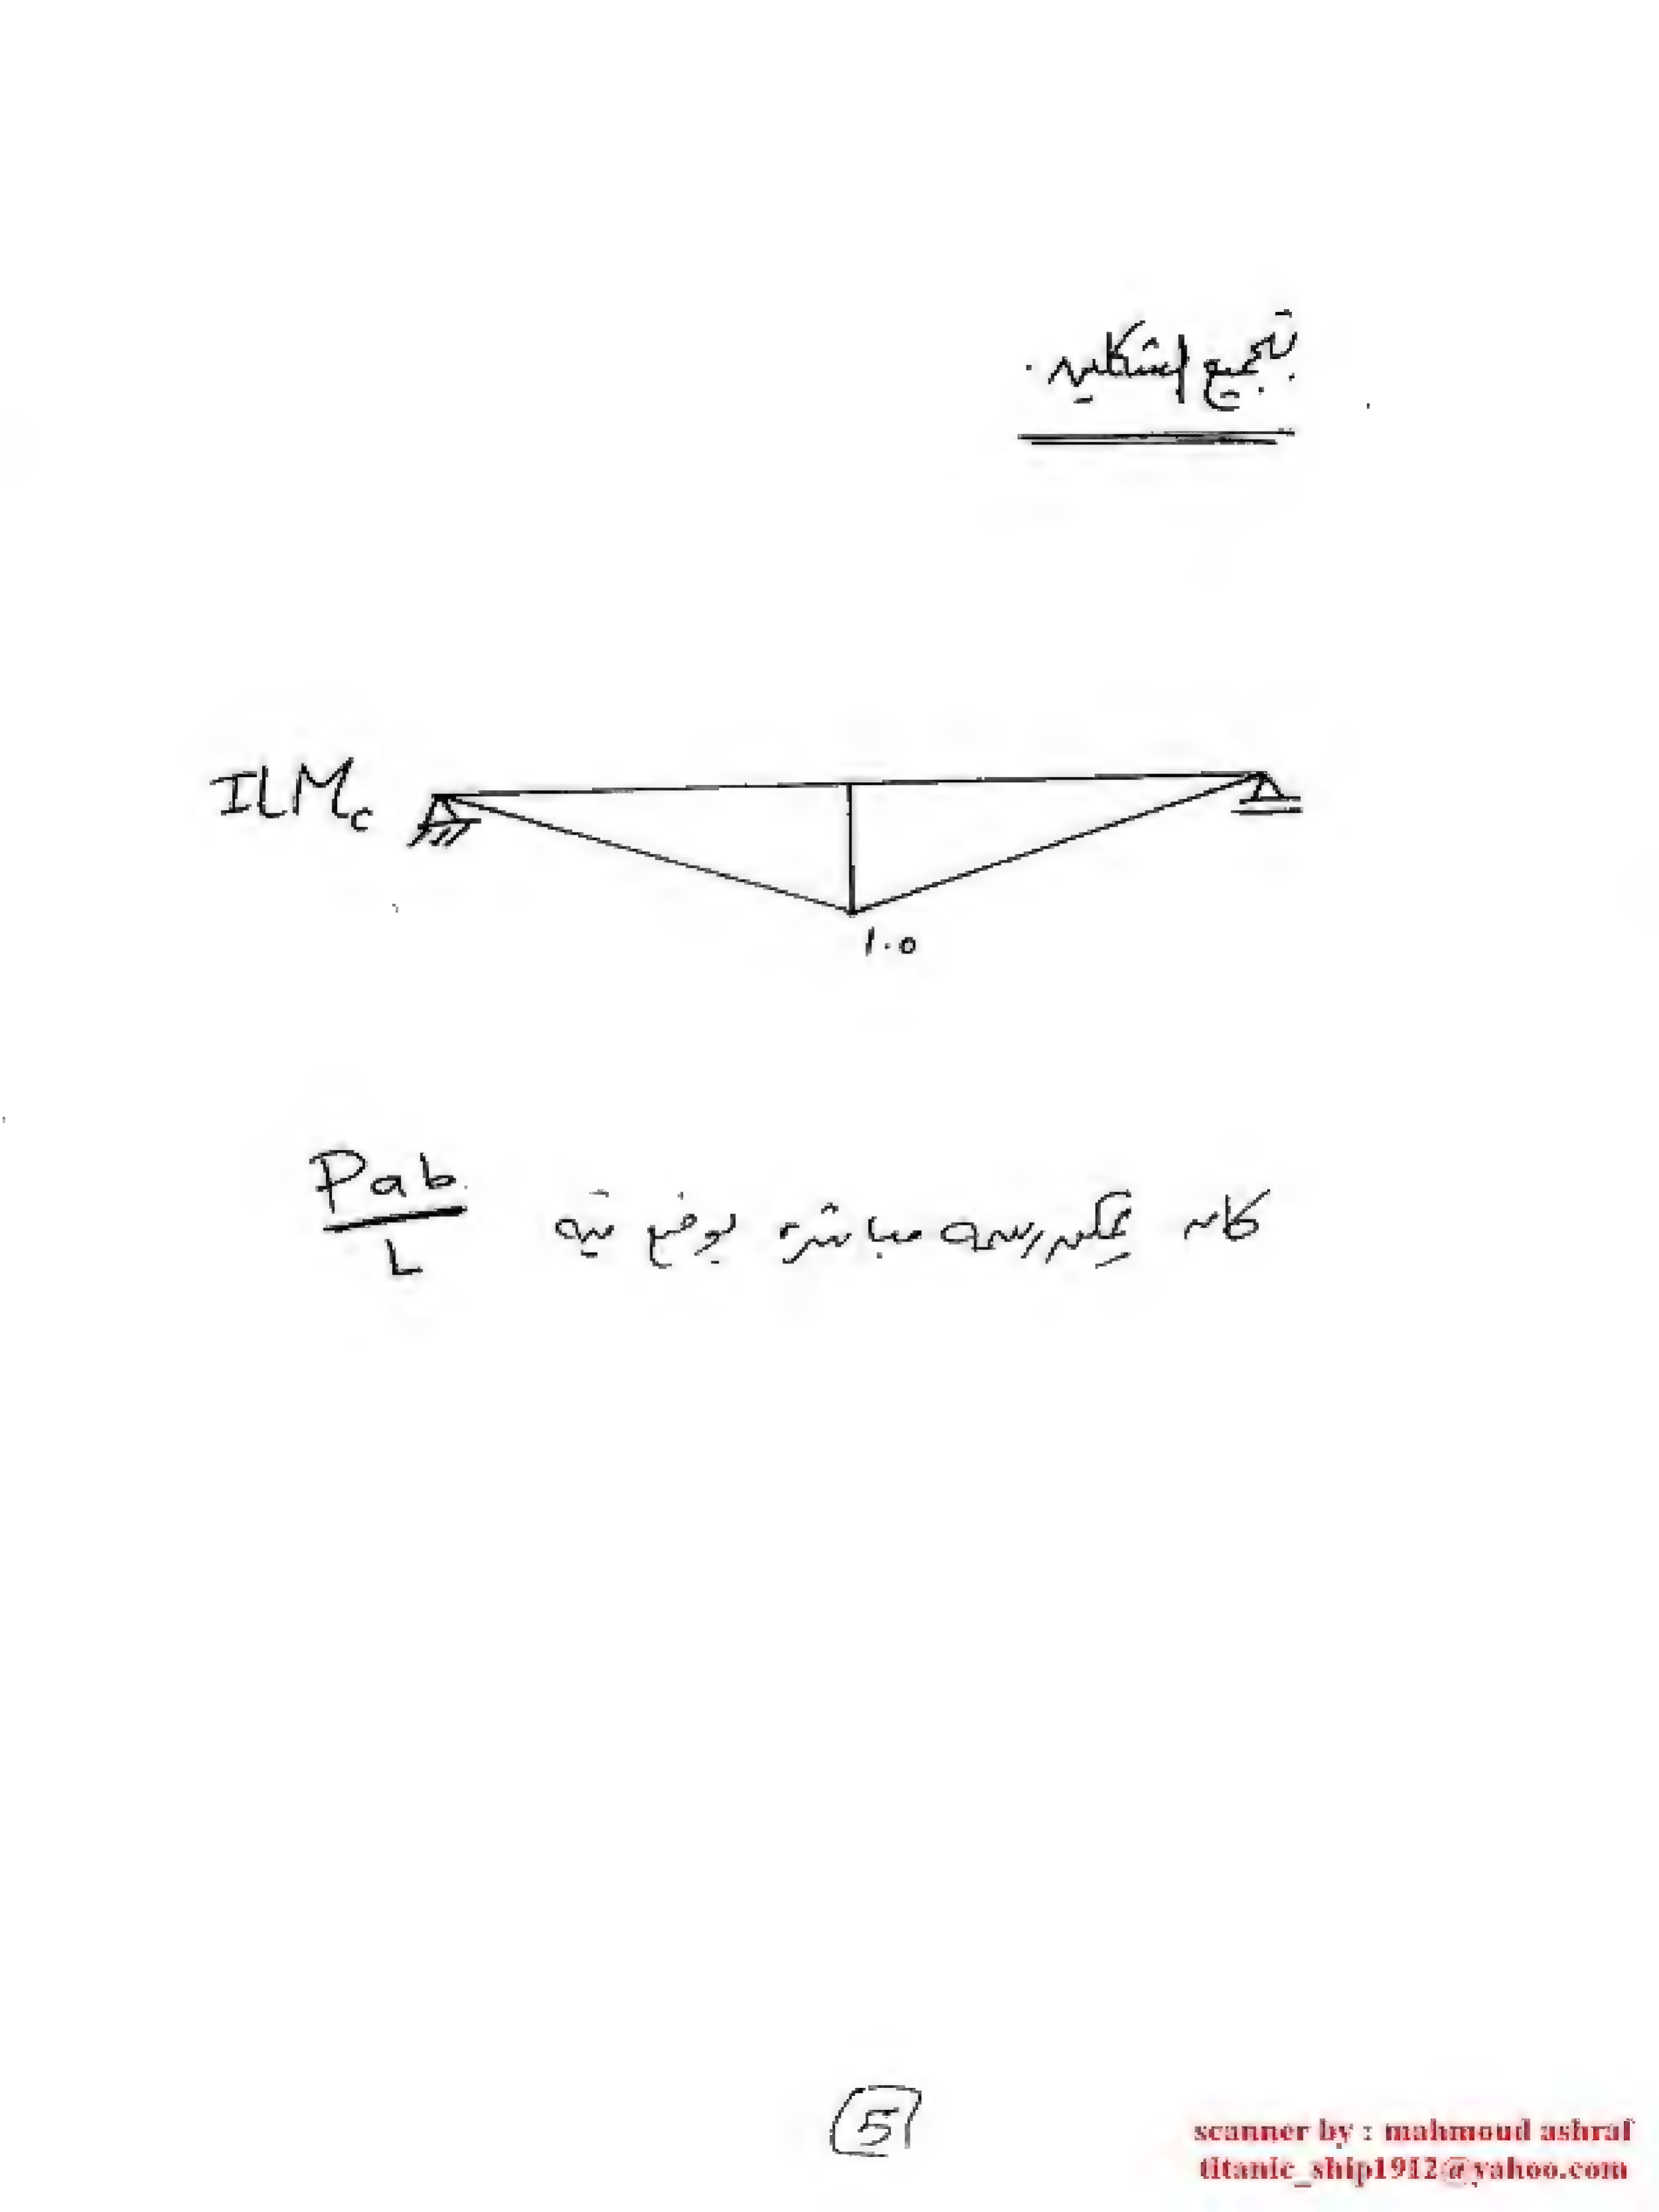 بتجميع الشكلين .
ILMc
1.0
كان يمكن رسمه مباشرة بوضع قيمة Pab/L
5
scanner by : mahmoud ashraf
titanic_ship1912@yahoo.com